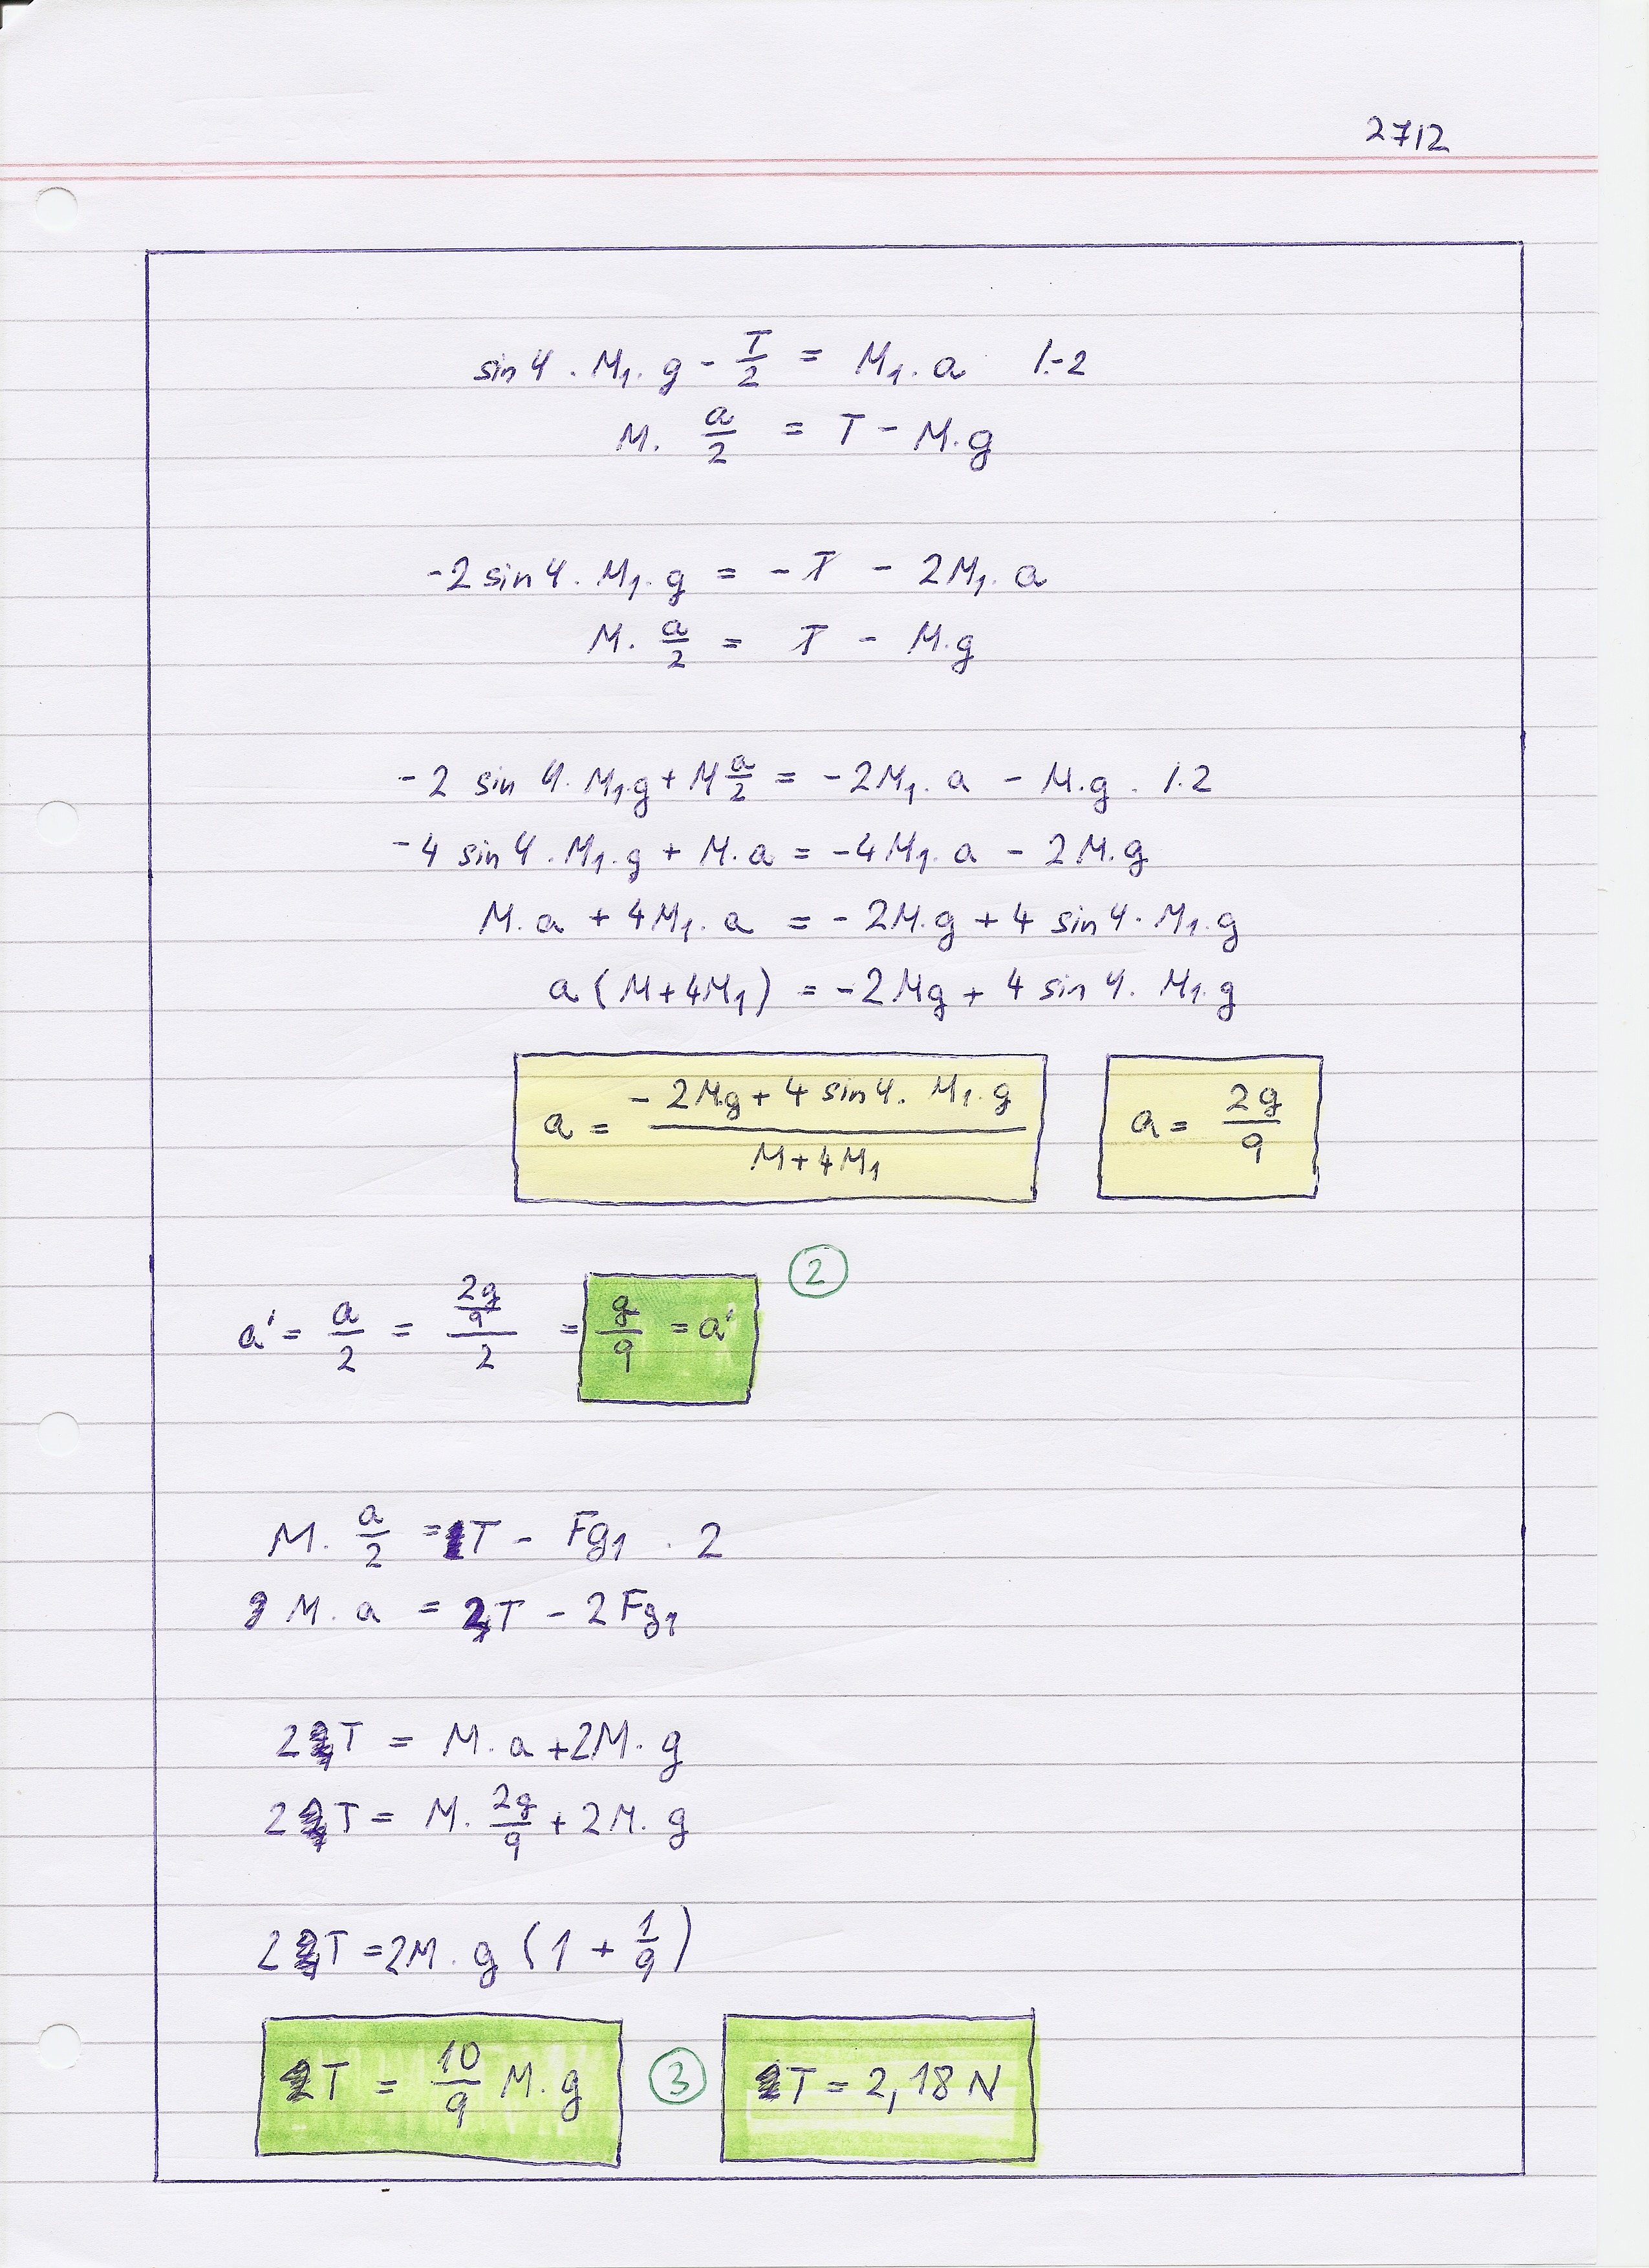 2712
sin φ . M₁. g - T/2 = M₁. a /.-2
M. a/2 = T - M.g
-2 sin φ. M₁. g = - T - 2M₁. a
M. a/2 = T - M.g
-2 sin φ. M₁.g + M a/2 = -2M₁. a - M.g . /.2
-4 sin φ . M₁. g + M. a = -4M₁. a - 2M.g
M. a + 4M₁. a = -2M.g + 4 sin φ. M₁. g
a (M+4M₁) = -2Mg + 4 sin φ. M₁. g
a = (-2Mg + 4 sin φ. M₁. g)/(M+4M₁) a = 2g/9
a' = a/2 = (2g/9)/2 = g/9 = a' ②
M. a/2 = T - Fg₁ . 2
M. a = 2T - 2Fg₁
2T = M. a + 2M. g
2T = M. 2g/9 + 2M. g
2T = 2M. g (1 + 1/9)
T = 10/9 M. g ③ T = 2,18 N